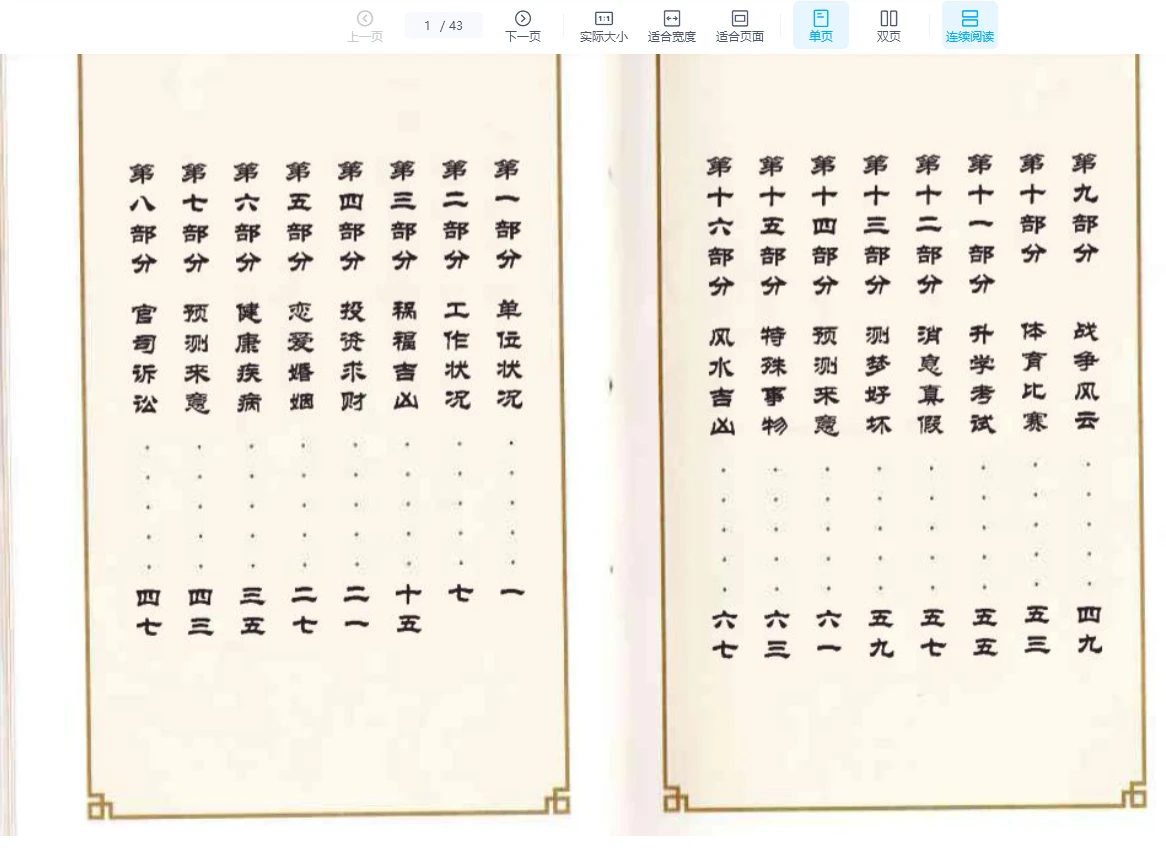 上一页
1 / 43
下一页
1:1
实际大小
适合宽度
适合页面
单页
双页
连续阅读
第一部分 单位状况·····一
第二部分 工作状况·····七
第三部分 祸福吉凶·····十五
第四部分 投资求财·····二一
第五部分 恋爱婚姻·····二七
第六部分 健康疾病·····三五
第七部分 预测来意·····四三
第八部分 官司诉讼·····四七
第九部分 战争风云·····四九
第十部分 体育比赛·····五三
第十一部分 升学考试·····五五
第十二部分 消息真假·····五七
第十三部分 测梦好坏·····五九
第十四部分 预测来意·····六一
第十五部分 特殊事物·····六三
第十六部分 风水吉凶·····六七